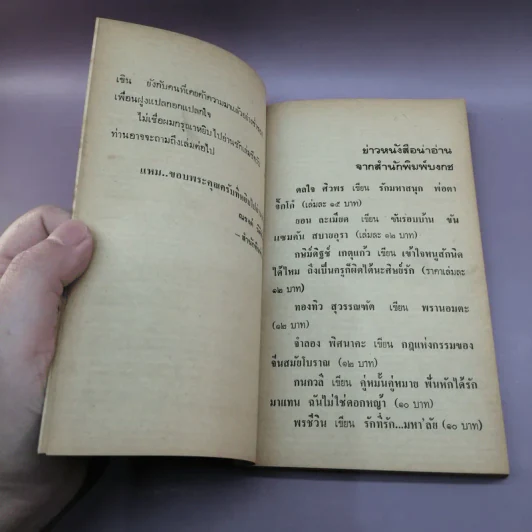 เขิน ยังกับคนที่เคยทำความ
เพื่อนฝูงแปลกอกแปลกใจ
ไม่เชื่อผมกรุณาหยิบไปอ่าน
ท่านอาจจะถามถึงเล่มต่อไป
แหม..ขอบพระคุณครับ
ข่าวหนังสือน่าอ่าน
จากสำนักพิมพ์บงกช
ดลใจ ศิวพร เขียน รักมหาสนุก พ่อดา
จิ๊กโก๋ (เล่มละ ๑๕ บาท)
ยอน ละเมียด เขียน ขันรอบบ้าน ขัน
แซมคัน สบายอุรา (เล่มละ ๑๒ บาท)
กษิม์ดิฐช์ เกตุแก้ว เขียน เข้าใจหนูสักนิด
ได้ไหม ถึงเป็นครูก็ผิดได้นะศิษย์รัก (ราคาเล่มละ
๑๒ บาท)
ทองทิว สุวรรณทัต เขียน พรานอมตะ
(๑๒ บาท)
จำลอง พิศนาคะ เขียน กฎแห่งกรรมของ
จีนสมัยโบราณ (๑๒ บาท)
กนกวลี เขียน คู่หมั้นคู่หมาย ฟั่นหักได้รัก
มาแทน ฉันไม่ใช่ดอกหญ้า (๑๐ บาท)
พรชีวิน เขียน รักที่รัก...มหา'ลัย (๑๐ บาท)